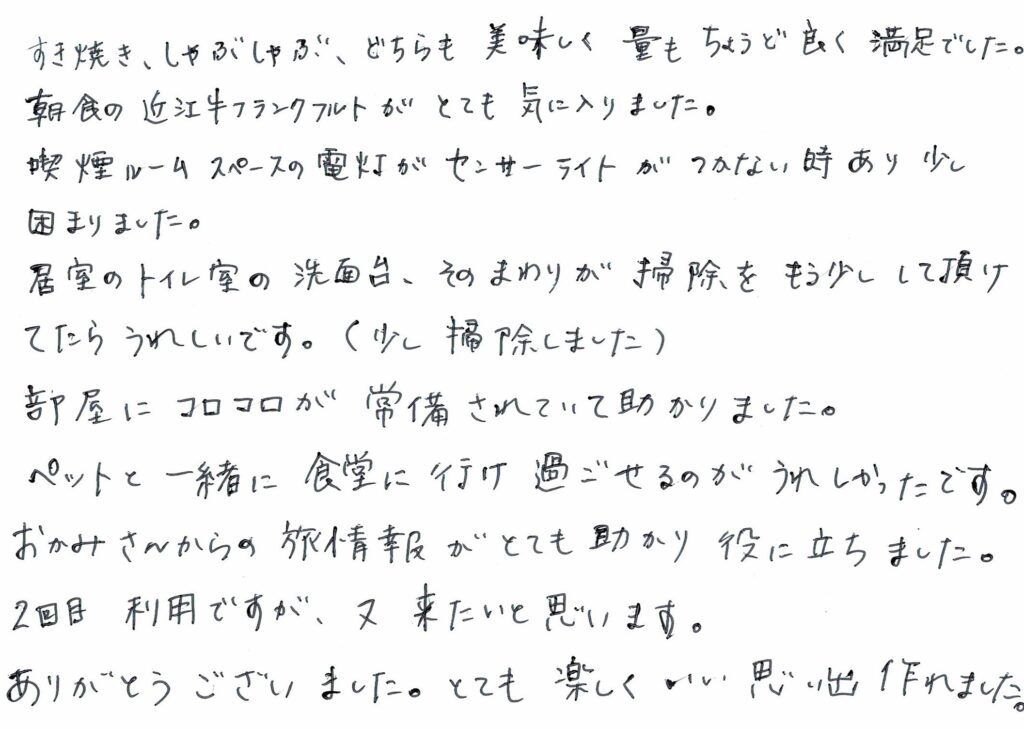 すき焼き、しゃぶしゃぶ、どちらも 美味しく 量も ちょうど 良く 満足でした。
朝食の 近江牛フランクフルトが とても 気に入りました。
喫煙ルーム スペースの電灯が センサーライトが つかない時あり 少し
困まりました。
居室のトイレ室の 洗面台、そのまわりが 掃除を もう少し して頂け
てたら うれしいです。(少し 掃除しました)
部屋に コロコロが 常備されていて助かりました。
ペットと 一緒に 食堂に 行け 過ごせるのが うれしかったです。
おかみさんからの 旅情報が とても 助かり 役に立ちました。
2回目 利用ですが、又 来たいと思います。
ありがとう ございました。とても 楽しく いい 思い出 作れました。